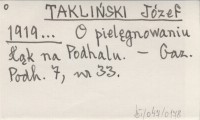 TAKLIŃSKI Józef
1919... O pielęgnowaniu
łąk na Podhalu. – Gaz.
Podh. 7, nr 33.